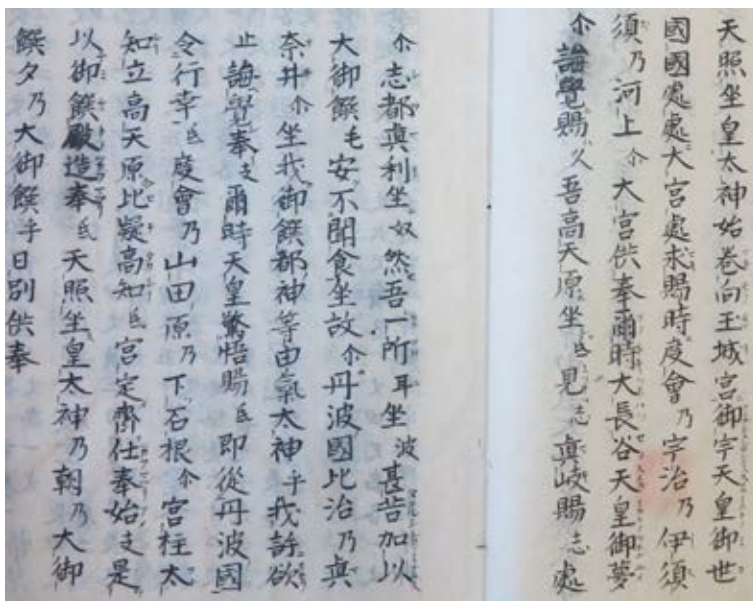 天照坐皇太神始卷向玉城宮御宇天皇御世
國國處處大宮處求賜時度會乃宇治乃伊須
須乃河上尒大宮供奉爾時大長谷天皇御夢
尒誨覺賜久吾高天原坐弖見志真岐賜志處
尒志都真利坐奴然吾一所耳坐波甚苦加以
大御饌毛安不聞食坐故尒丹波國比治乃真
奈井尒坐我御饌都神等由氣太神乎我許欲
止誨覺奉支爾時天皇驚悟賜弖即從丹波國
令行幸弖度會乃山田原乃下石根尒宮柱太
知立高天原比疑高知弖宮定齊仕奉始支是
以御饌殿造奉弖天照坐皇太神乃朝乃大御
饌夕乃大御饌乎日別供奉